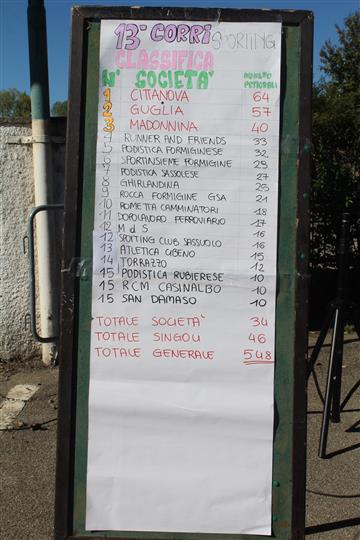 13ª CORRI SPORTING
CLASSIFICA
Nº SOCIETA' NUMERO PETTORALI
1 CITTANOVA 64
2 GUGLIA 57
3 MADONNINA 40
RUNNER AND FRIENDS 33
5 PODISTICA FORMIGINESE 32
6 SPORTINSIEME FORMIGINE 29
7 PODISTICA SASSOLESE 27
8 GHIRLANDINA 23
9 ROCCA FORMIGINE GSA 21
10 ROMETTA CAMMINATORI 18
11 DOPOLAVORO FERROVIARIO 17
12 MdS 16
12 SPORTING CLUB SASSUOLO 16
13 ATLETICA CIBENO 15
14 TORRAZZO 12
15 PODISTICA RUBIERESE 10
15 RCM CASINALBO 10
15 SAN DAMASO 10
TOTALE SOCIETA' 34
TOTALE SINGOLI 46
TOTALE GENERALE 548